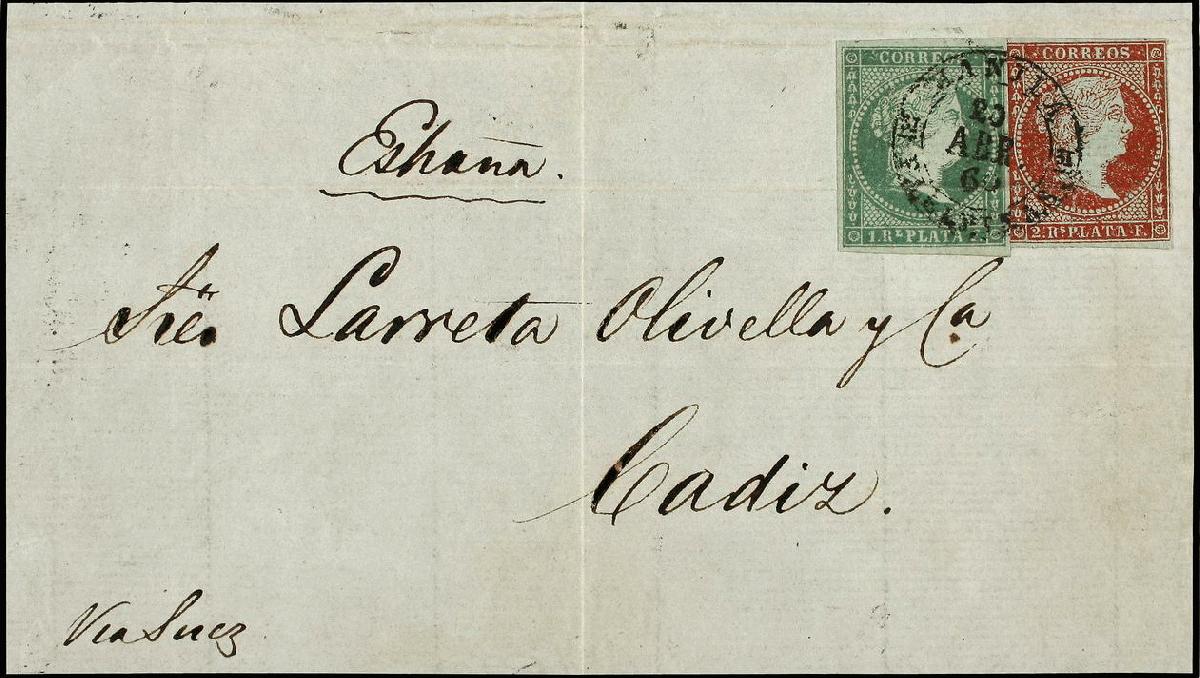 CORREOS
1. Rˡ PLATA F.
CORREOS
2. Rˢ PLATA. F.
MANILA
ABR
España.
Sres Larreta Olivella y Ca
Cadiz.
Via Suez